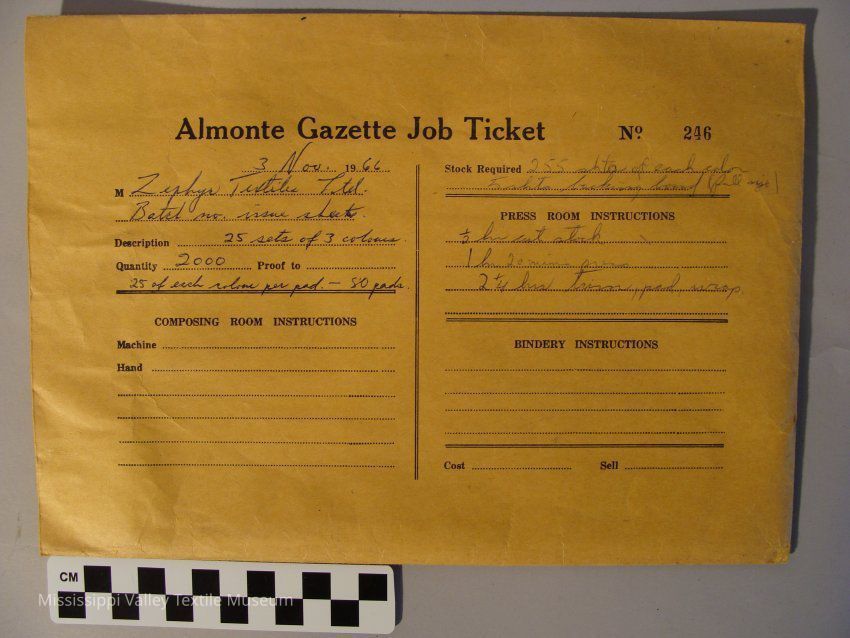 Almonte Gazette Job Ticket Nº 246
3 Nov. 1966
M Zephyr Textiles Ltd.
Batch no. issue sheets.
Description 25 sets of 3 colours.
Quantity 2000 Proof to
25 of each colour per pad. – 80 pads.
COMPOSING ROOM INSTRUCTIONS
Machine
Hand
Stock Required 255 shts of each color
5 shts backing board (full size)
PRESS ROOM INSTRUCTIONS
½ hr cut stock
1 hr 20 mins
2¼ hrs pad wrap
BINDERY INSTRUCTIONS
Cost Sell
CM
Mississippi Valley Textile Museum